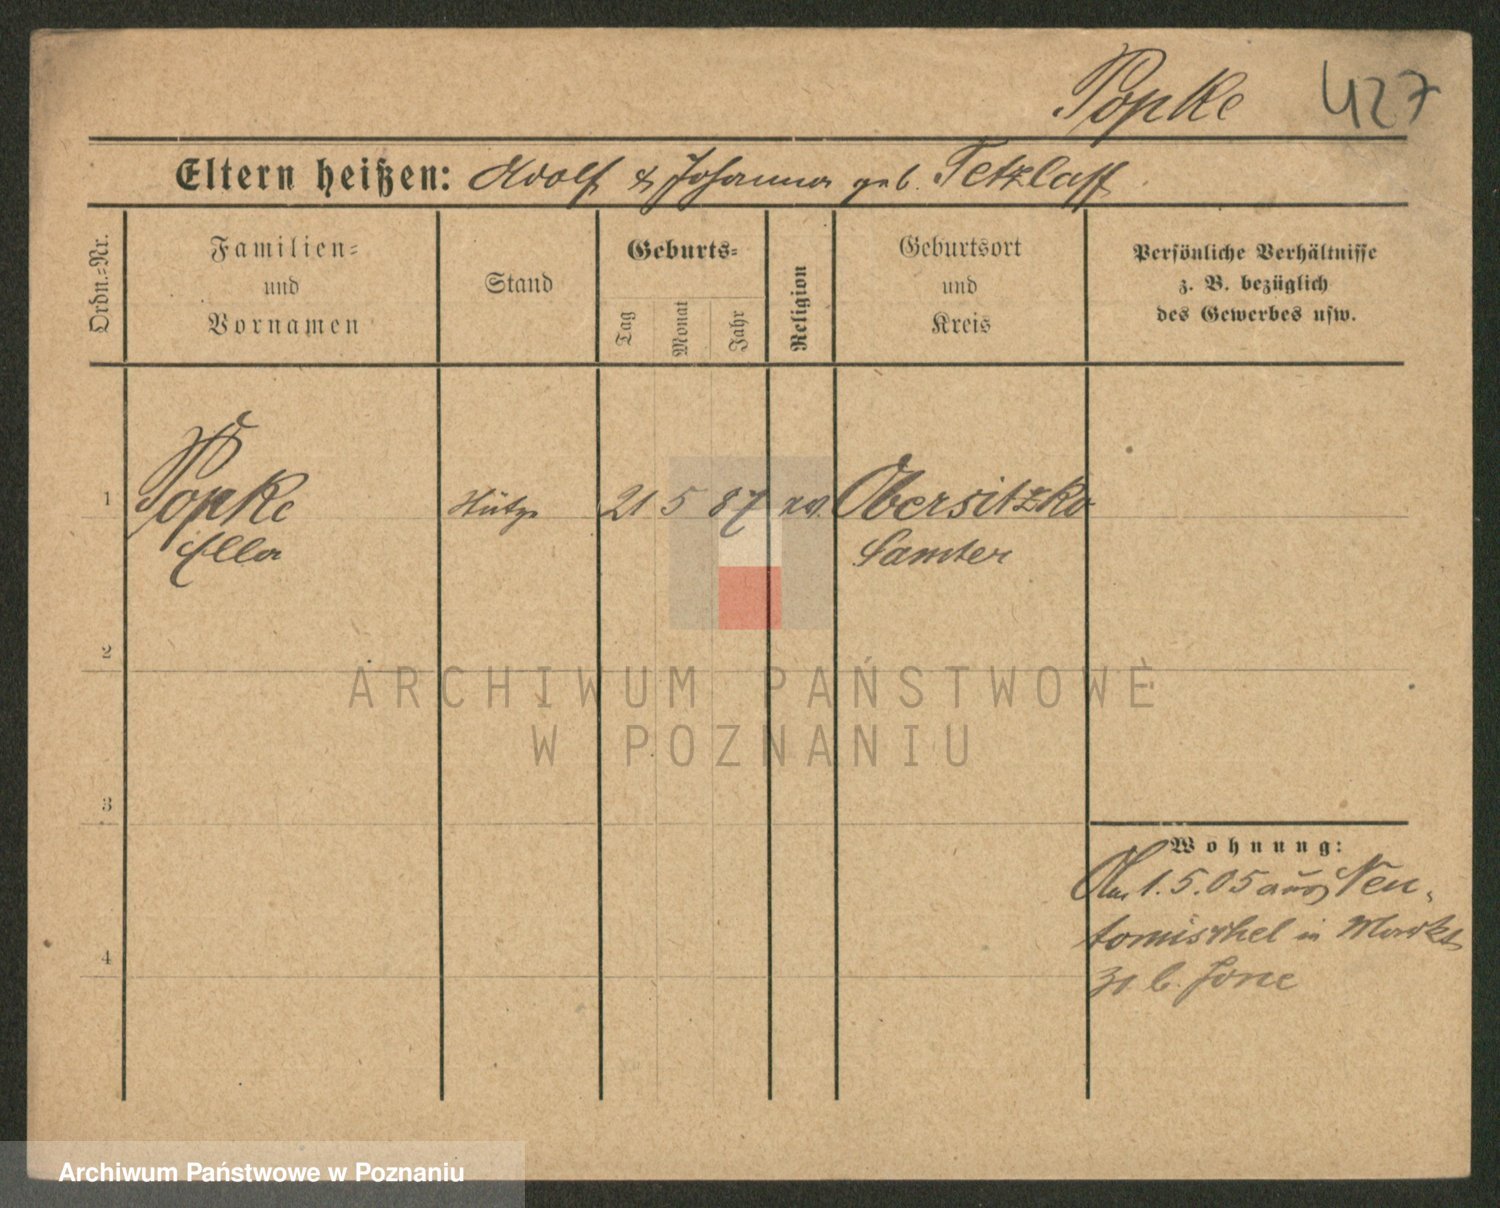 Popke 427
Eltern heißen: Adolf & Johanna geb. Tetzlaff
Ordn.=Nr.
Familien=
und
Vornamen
Stand
Geburts=
Tag
Monat
Jahr
Religion
Geburtsort
und
Kreis
Persönliche Verhältnisse
z. B. bezüglich
des Gewerbes usw.
1 Popke Stütze 21 5 87 ev. Obersitzko
Ella Samter
2
ARCHIWUM PAŃSTWOWE
W POZNANIU
3
Wohnung:
Am 1.5.05 aus Neu-
tomischel in Markt
4
31 b. Jone
Archiwum Państwowe w Poznaniu